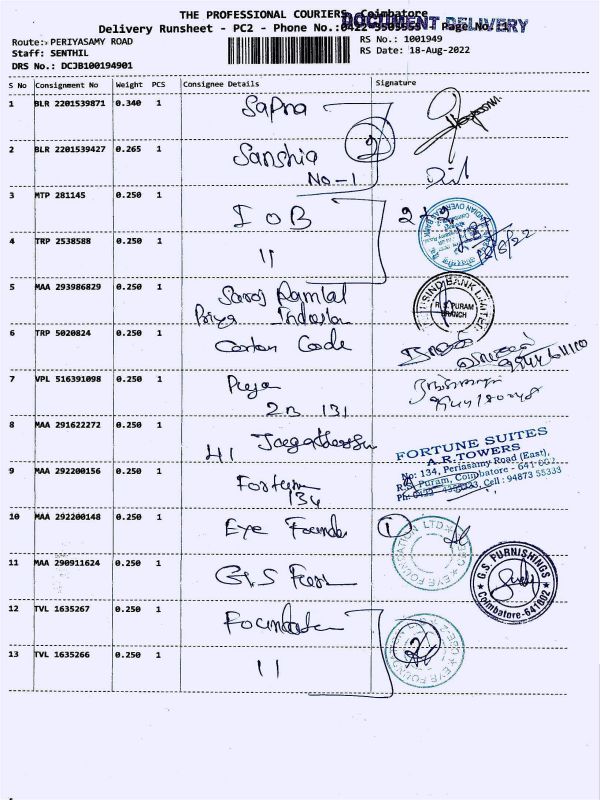 THE PROFESSIONAL COURIERS, Coimbatore
DOCUMENT DELIVERY
Delivery Runsheet - PC2 - Phone No.:0422-3503555 Page No.:1
Route: PERIYASAMY ROAD
RS No.: 1001949
Staff: SENTHIL
RS Date: 18-Aug-2022
DRS No.: DCJB100194901
S No Consignment No Weight PCS Consignee Details Signature
1 BLR 2201539871 0.340 1 Sapna
2 BLR 2201539427 0.265 1 Sanshia
No-1
3 MTP 281145 0.250 1 IOB 2
INDIAN OVERSEAS BANK
4 TRP 2538588 0.250 1 11
18/8/22
5 MAA 293986829 0.250 1 Saroj Ramlal
Priya
INDUSIND BANK LIMITED
R.S. PURAM
BRANCH
6 TRP 5020824 0.250 1 Code
7 VPL 516391098 0.250 1
2B 131
8 MAA 291622272 0.250 1
41
FORTUNE SUITES
A.R.TOWERS
No: 134, Periasamy Road (East),
R.S. Puram, Coimbatore - 641 002.
Cell : 94873 55333
9 MAA 292200156 0.250 1
134
10 MAA 292200148 0.250 1 Eye 1
EYE FOUNDATION LTD
11 MAA 290911624 0.250 1 G.S
G.S. FURNISHINGS
Coimbatore-641002
12 TVL 1635267 0.250 1
2
EYE FOUNDATION
13 TVL 1635266 0.250 1 11